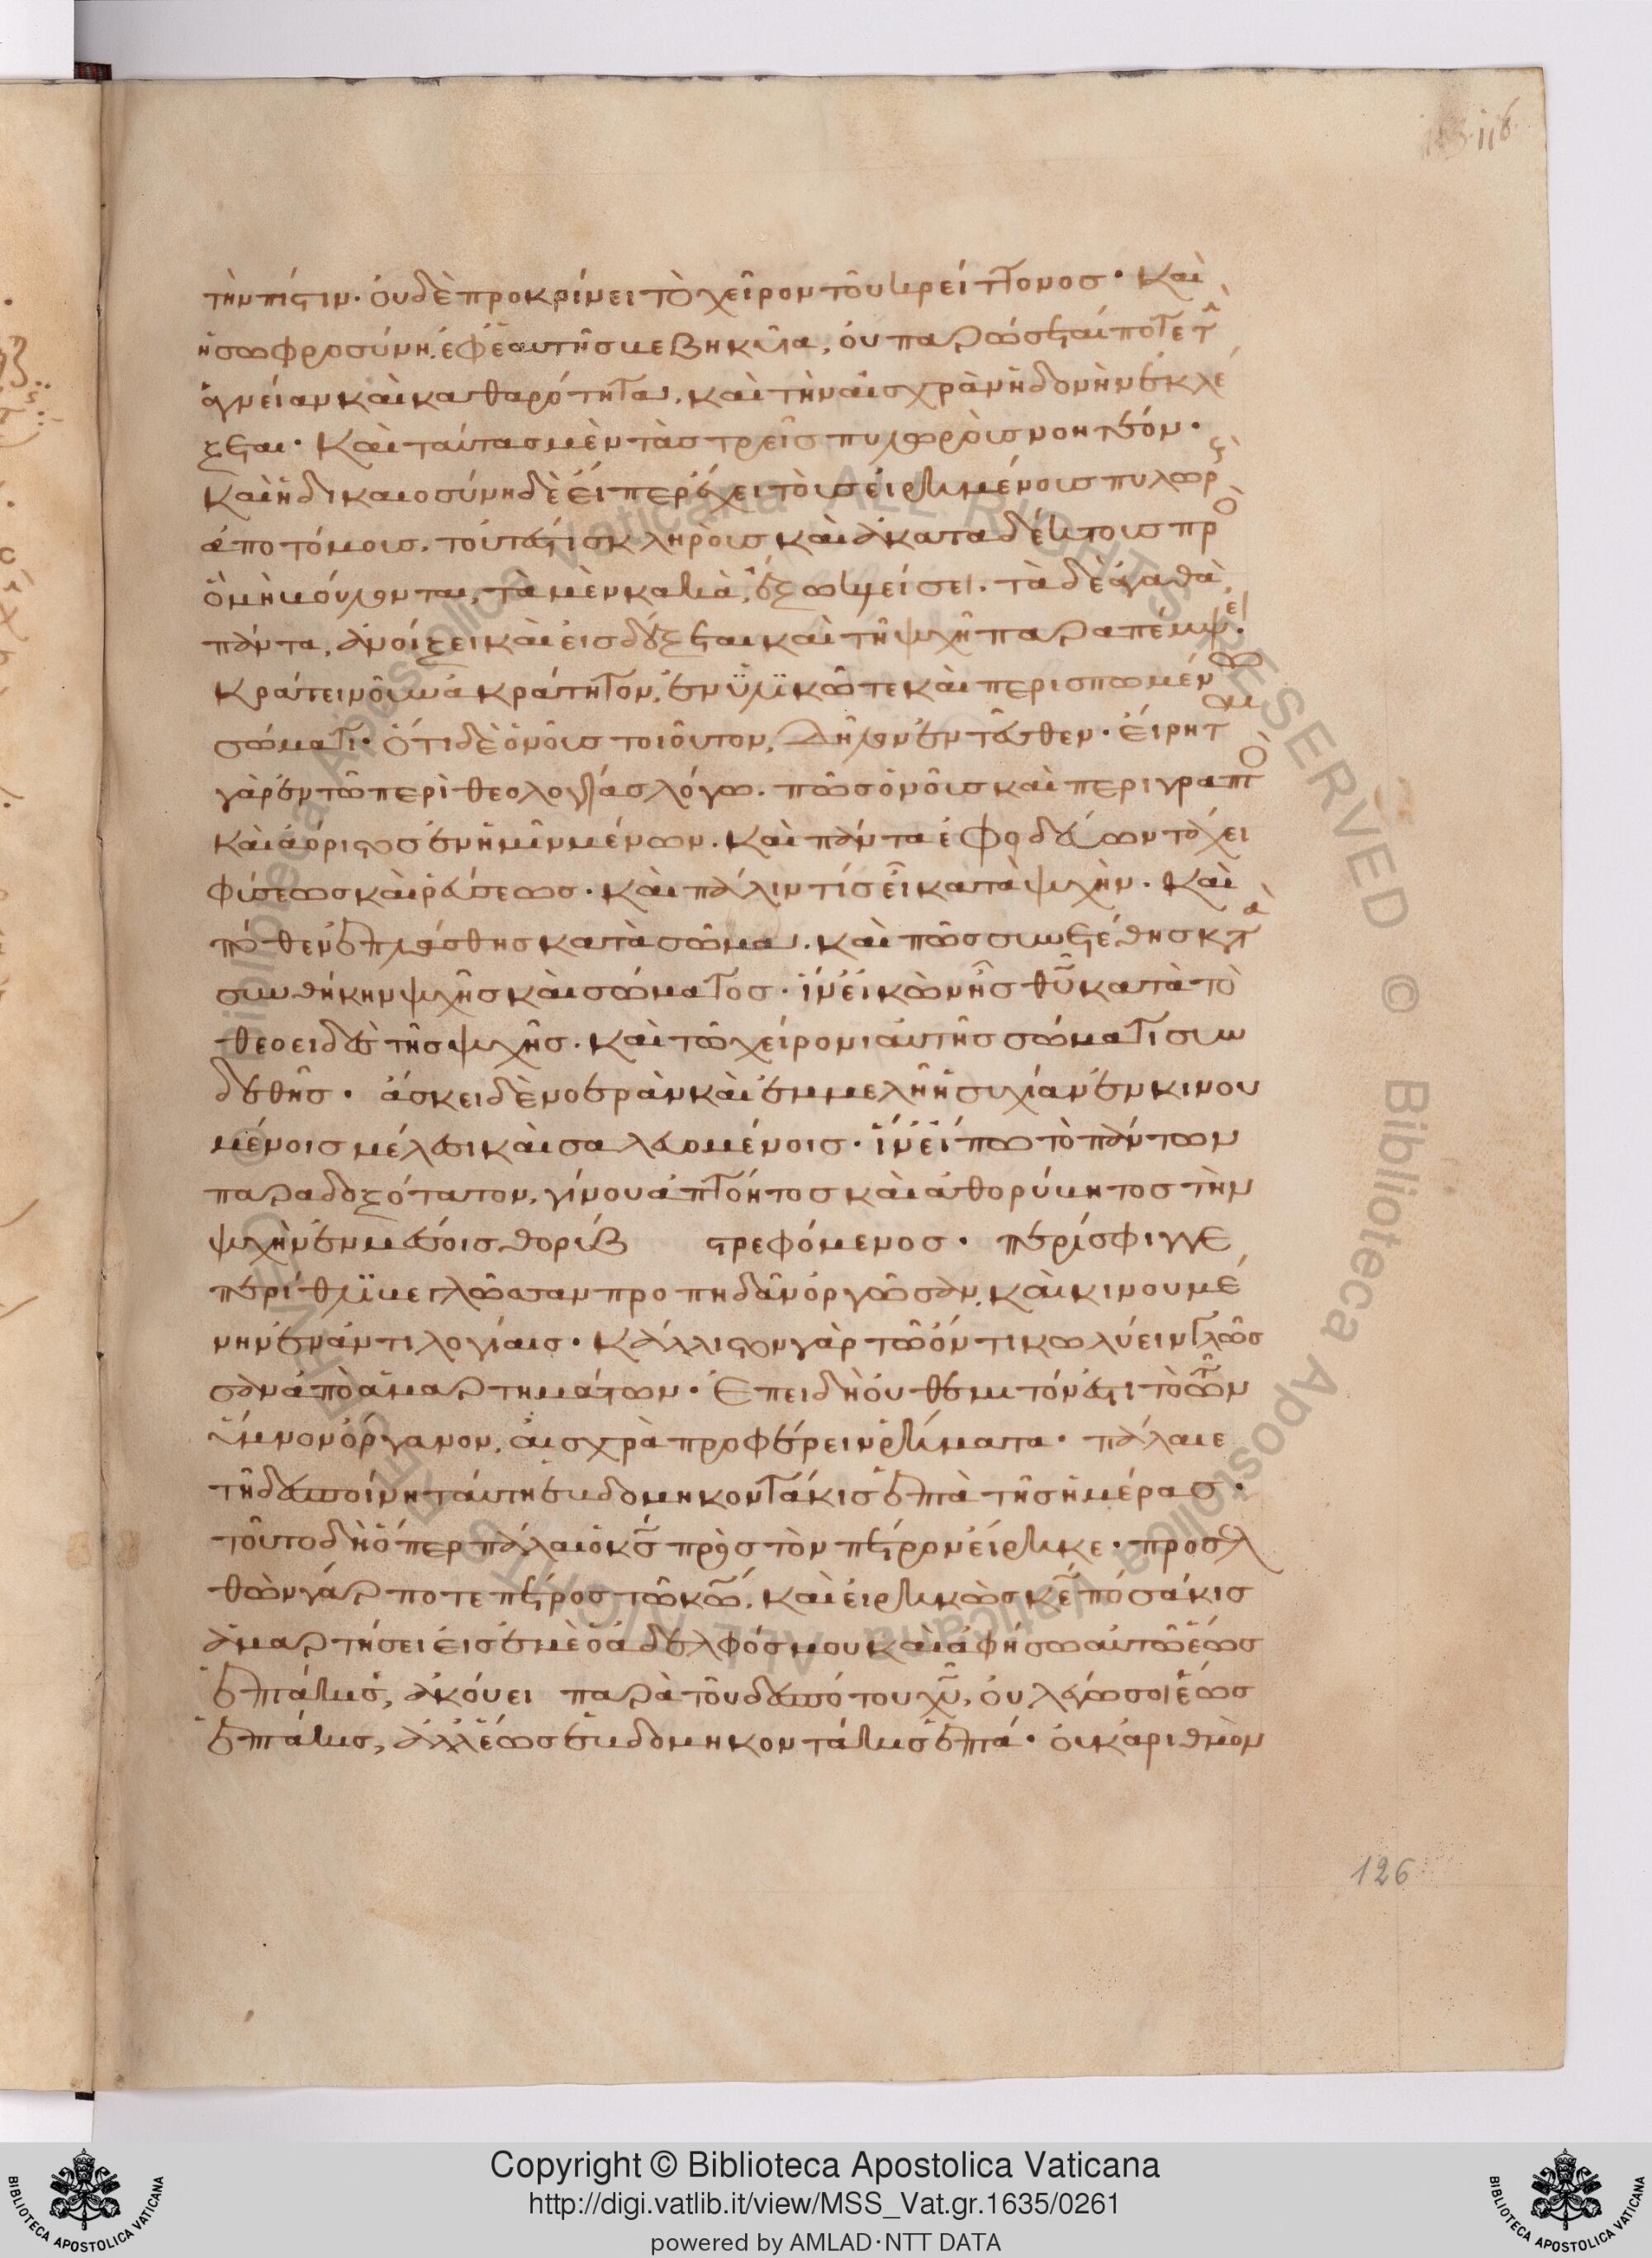 116
τὴν πίστιν· οὐδὲ προκρίνει τὸ χεῖρον τοῦ κρείττονος· Καὶ
ἡ σωφροσύνη, ἐφ' ἑαυτῆς βεβηκυῖα, οὐ παρώσεταί ποτε τ
ἁγνείαν καὶ καθαρότητα, καὶ τὴν αἰσχρὰν ἡδονὴν ἐκλέ
ξεται· Καὶ ταύτας μὲν τὰς τρεῖς πυλωροὺς νοητέον·
Καὶ ἡ δικαιοσύνη δὲ εἴπερ ἔχει τοῖς εἰρημένοις πυλωρ
ἀποτόμοις, τουτέστι σκληροῖς καὶ ἀκαταδέκτοις πρ
ὃ μὴ βούλονται, τὰ μὲν κακὰ, ἐξωκλείσει. τὰ δὲ ἀγαθὰ
πάντα, ἀνοίξει καὶ εἰσδέξεται καὶ τῆ ψυχῆ παραπέμψει·
Κράτει νοῦν ἀκράτητον, ἐν ὑλικῶ τε καὶ περισπωμένω
σώματι· ὅτι δὲ ὁ νοῦς τοιοῦτον, δῆλον ἐντεῦθεν· εἴρητ
γὰρ ἐν τῶ περὶ θεολογίας λόγω. πῶς ὁ νοῦς καὶ περιγραπτὸ
καὶ ἀόριστος ἐν ἡμῖν μένων. καὶ πάντα ἐφοδεύων τάχει
φύσεως καὶ ῥεύσεως· καὶ πάλιν τίς εἶ κατὰ ψυχήν· Καὶ
πόθεν ἐπλάσθης κατὰ σῶμα. καὶ πῶς συνετέθης κατὰ
συνθήκην ψυχῆς καὶ σώματος· ἵν' εἰκὼν ἦς θῦ κατὰ τὸ
θεοειδὲς τῆς ψυχῆς. καὶ τῶ χείρονι αὐτῆς σώματι συν
δεθῆς· ἄσκει δὲ νοερὰν καὶ ἐμμελῆ ἡσυχίαν ἐν κινου
μένοις μέλεσι καὶ σαλευομένοις· ἵν' εἴπω τὸ πάντων
παραδοξότατον, γίνου ἀπτόητος καὶ ἀθορύβητος τὴν
ψυχὴν ἐν μέσοις θορύβ στρεφόμενος· περίσφιγγε
περίθλιβε γλῶσσαν προπηδᾶν ὀργῶσαν, καὶ κινουμέ
νην ἐν ἀντιλογίαις· Κάλλιστον γὰρ τῶ ὄντι κωλύειν γλῶσ
σαν ἀπὸ ἁμαρτημάτων· Ἐπειδὴ οὐ θεμιτόν ἐστι τὸ τῶν
ὕμνον ὄργανον, αἰσχρὰ προφέρειν ῥήματα· πάλαιε
τῆ δεσποίνη ταύτη ἑβδομηκοντάκις ἑπτὰ τῆς ἡμέρας·
τοῦτο δὴ ὅπερ πάλαι ὁ κς πρὸς τὸν πέτρον εἴρηκε· προσελ
θὼν γάρ ποτε πέτρος τῶ κω, καὶ εἰρηκὼς κε ποσάκις
ἁμαρτήσει εἰς ἐμὲ ὁ ἀδελφός μου καὶ ἀφήσω αὐτῶ ἕως
ἑπτάκις, ἀκούει παρὰ τοῦ δεσπότου χυ, οὐ λέγω σοι ἕως
ἑπτάκις, ἀλλ' ἕως ἑβδομηκοντάκις ἑπτά· οὐκ ἀριθμὸν
126
Copyright © Biblioteca Apostolica Vaticana
http://digi.vatlib.it/view/MSS_Vat.gr.1635/0261
powered by AMLAD·NTT DATA
BIBLIOTECA APOSTOLICA VATICANA
BIBLIOTECA APOSTOLICA VATICANA